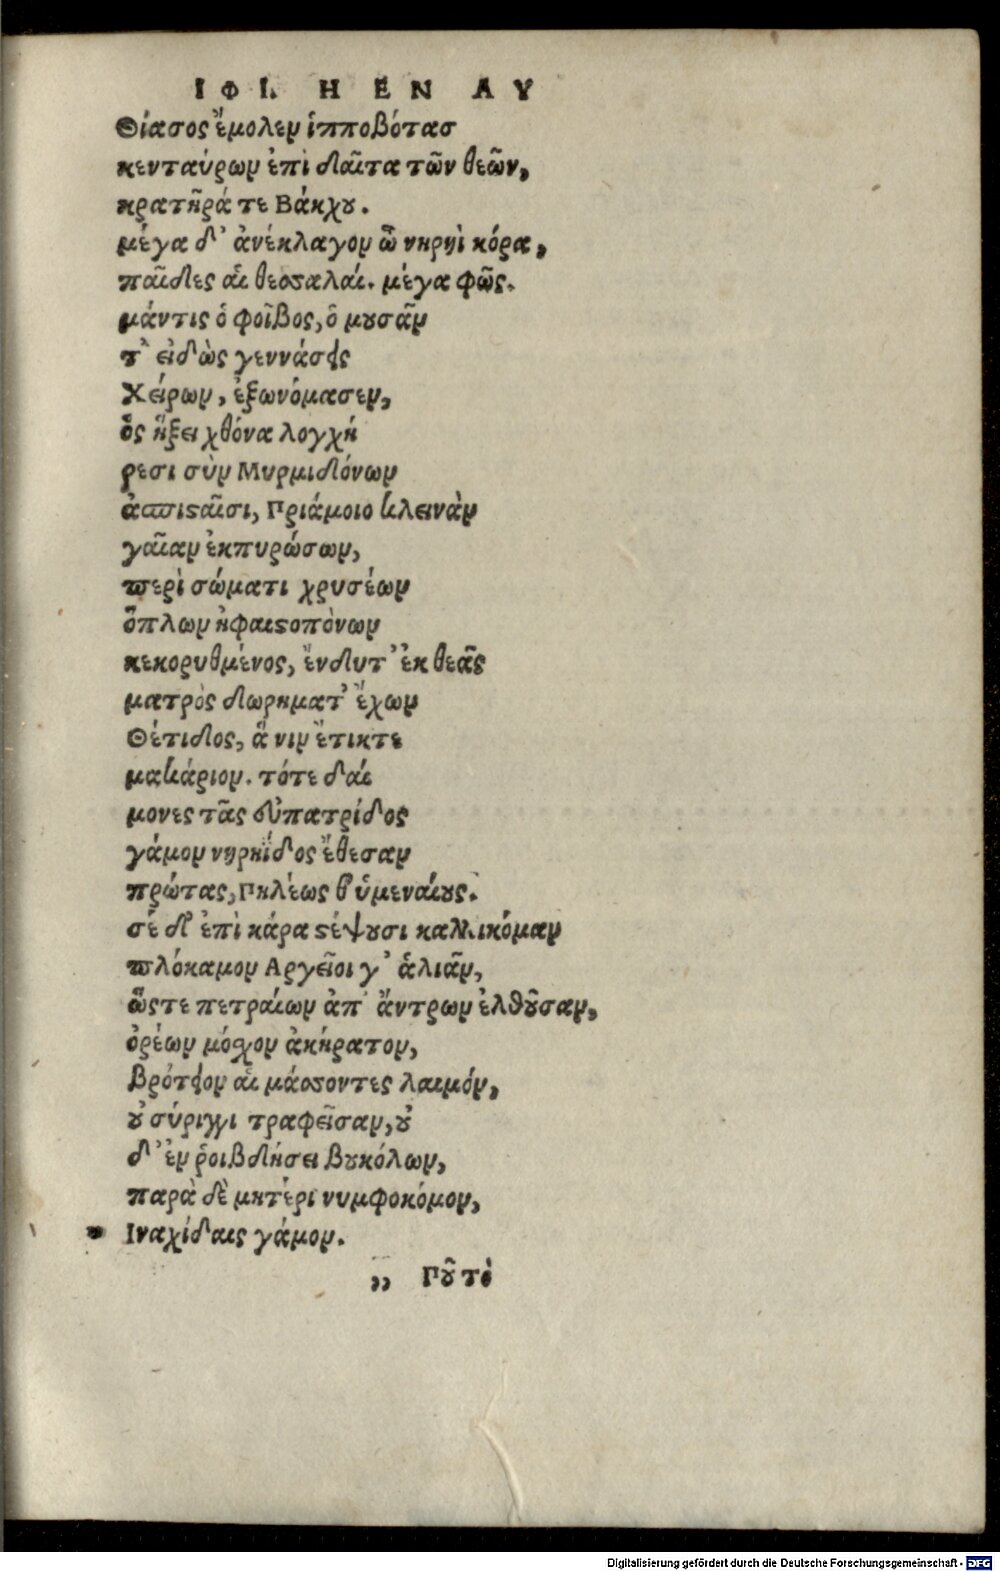 ΙΦΙ. Η ΕΝ ΑΥ
Θίασος ἔμολεν ἱπποβότας
κενταύρων ἐπὶ δαῖτα τῶν θεῶν,
κρατῆρά τε Βάκχου.
μέγα δ' ἀνέκλαγον ὦ νηρηῒ κόρα,
παῖδες αἱ θεσσαλαί. μέγα φῶς.
μάντις ὁ φοῖβος, ὁ μουσᾶν
τ' εἰδὼς γεννάσεις
Χείρων, ἐξωνόμασεν,
ὃς ἥξει χθόνα λογχή
ρεσι σὺν Μυρμιδόνων
ἀσπισταῖσι, Πριάμοιο κλεινὰν
γαῖαν ἐκπυρώσων,
περὶ σώματι χρυσέων
ὅπλων ἡφαιστοπόνων
κεκορυθμένος, ἔνδυτ' ἐκ θεᾶς
ματρὸς δωρηματ' ἔχων
Θέτιδος, ἅ νιν ἔτικτε
μακάριον. τότε δαί
μονες τᾶς εὐπατρίδος
γάμον νηρηΐδος ἔθεσαν
πρώτας, Πηλέως θ' ὑμεναίους.
σέ δ' ἐπὶ κάρα στέψουσι καλλικόμαν
πλόκαμον Αργεῖοι γ' ἁλιᾶν,
ὥστε πετραίων ἀπ' ἄντρων ἐλθοῦσαν,
ὀρέων μόσχον ἀκήρατον,
βρότειον αἱμάσσοντες λαιμόν,
οὐ σύριγγι τραφεῖσαν, οὐ
δ' ἐν ῥοιβδήσει βουκόλων,
παρὰ δὲ μητέρι νυμφοκόμον,
Ιναχίδαις γάμον.
,, Ποῦ τὸ
Digitalisierung gefördert durch die Deutsche Forschungsgemeinschaft - DFG